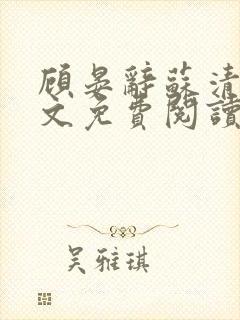 顾晏辭蘇清
文免費閱讀
吴雅琪